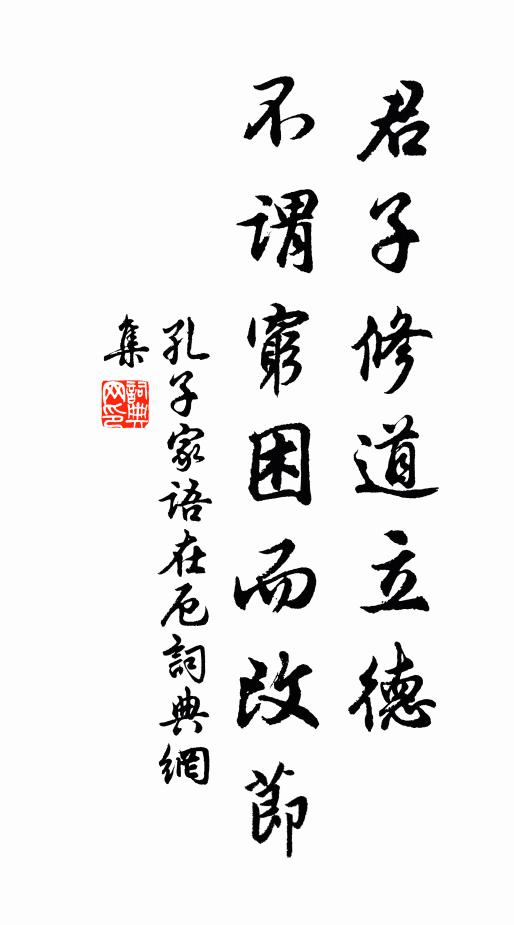 君子修道立德
不谓窮困而改節
孔子家语在厄詞典網
集
詞典网印